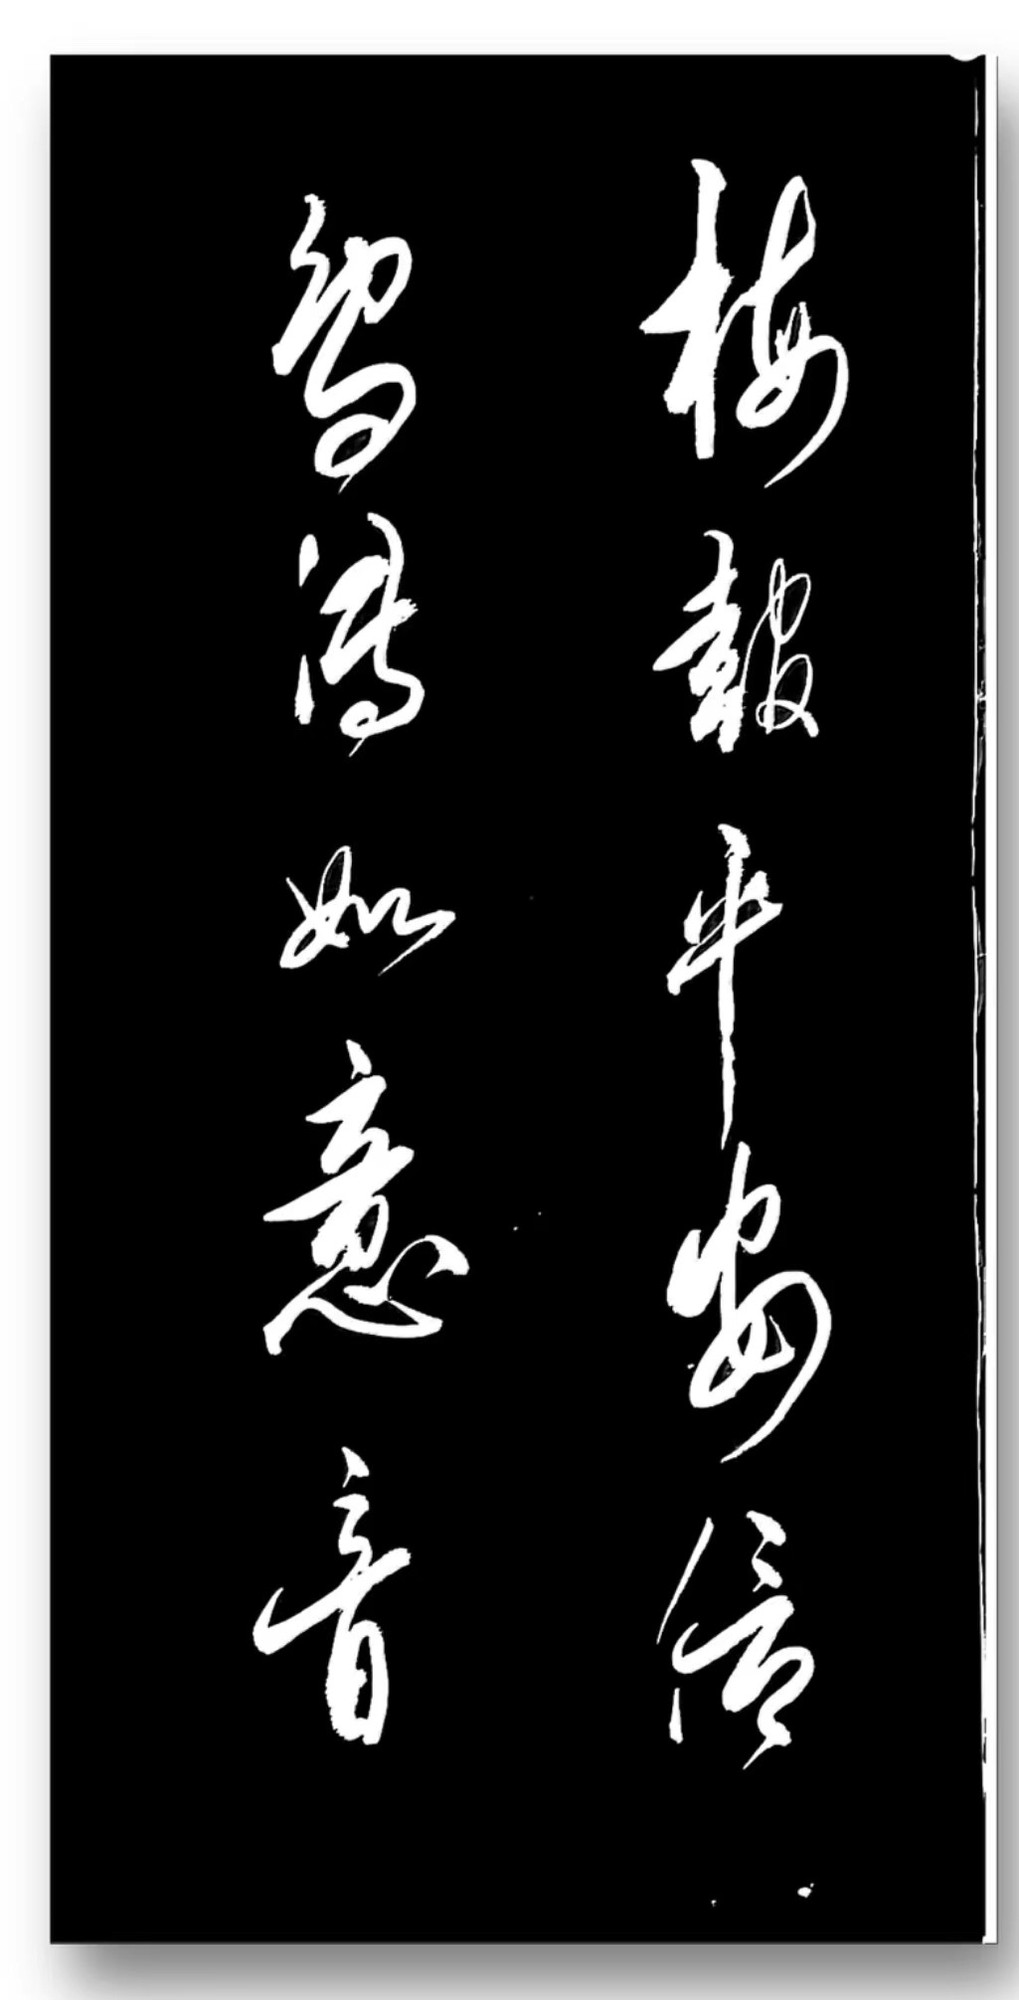 梅報平安信
鸟傳如意音